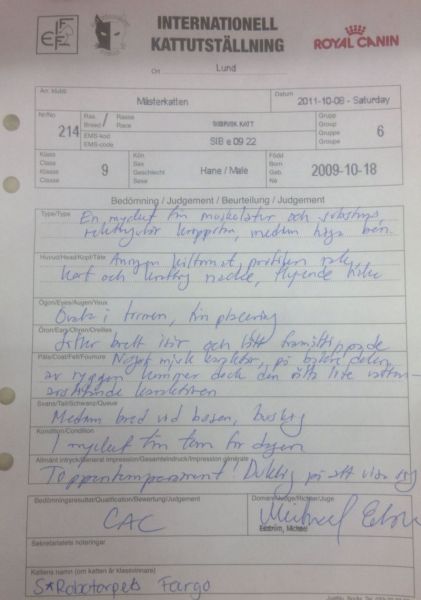 FIFE
INTERNATIONELL
KATTUTSTÄLLNING
ROYAL CANIN
Ort Lund
Arr. klubb
Mästerkatten
Datum
2011-10-08 - Saturday
Nr/No
214
Ras
Breed
EMS-kod
EMS-code
Rasse
Race
SIBIRISK KATT
SIB e 09 22
Grupp
Group
Gruppe
Groupe
6
Klass
Class
Klasse
Classe
9
Kön
Sex
Geschlecht
Sexe
Hane / Male
Född
Born
Geb.
Né
2009-10-18
Bedömning / Judgement / Beurteilung / Judgement
Type/Type
En mycket fin muskelatur och substans,
rektangulär kroppsform, medium höga ben.
Huvud/Head/Kopf/Tête
Aningen kilformat, profilen rak
kort och kraftig nacke, haka
Ögon/Eyes/Augen/Yeux
Ovala i formen, fin placering
Öron/Ears/Ohren/Oreilles
Sitter brett isär och lätt framåttippade
Päls/Coat/Fell/Fourrure
Något mjuk karaktär, på bakre delen
av ryggen kommer dock den rätta lite vatten-
avstötande karaktären
Svans/Tail/Schwanz/Queue
Medium bred vid basen, buskig
Kondition/Condition
I mycket fin form för dagen
Allmänt intryck/General impression/Gesamteindruck/Impression générale
Toppentemperament! Duktig på att visa sig
Bedömningsresultat/Qualification/Bewertung/Judgement
CAC
Domare/Judge/Richter/Juge
Michael Edström
Edström, Michael
Sekretariatets noteringar
Kattens namn (om katten är klassvinnare)
S*Robotorpets Fargo